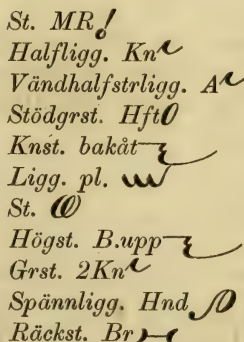 St. MR
Halfligg. Kn
Vändhalfstrligg. A
Stödgrst. Hft
Knst. bakåt
Ligg. pl.
St.
Högst. B.upp
Grst. 2Kn
Spännligg. Hnd
Räckst. Br